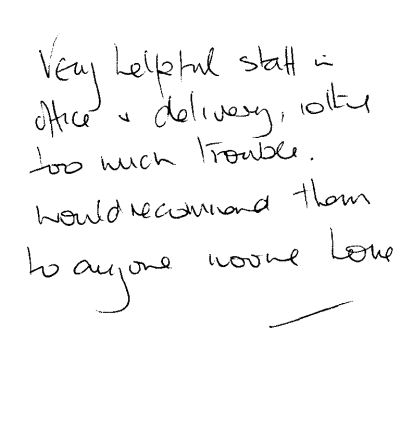 Very helpful staff in
office & delivery,
too much trouble.
would recommend them
to anyone moving home